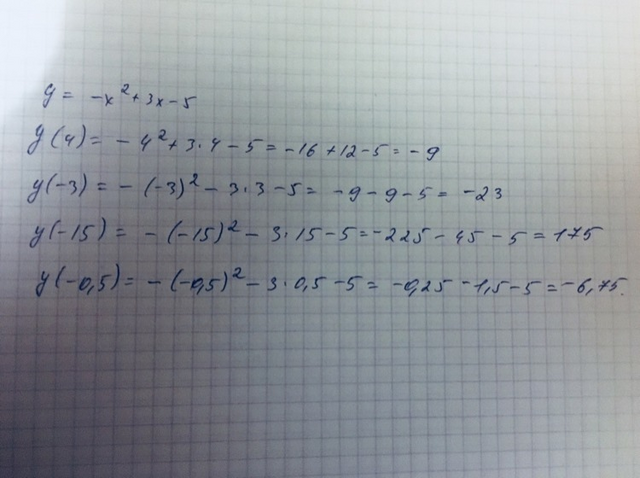 y = -x² + 3x - 5
y(4) = - 4² + 3·4 - 5 = -16 + 12 - 5 = -9
y(-3) = - (-3)² - 3·3 - 5 = -9 - 9 - 5 = -23
y(-15) = - (-15)² - 3·15 - 5 = -225 - 45 - 5 = 175
y(-0,5) = - (-0,5)² - 3·0,5 - 5 = -0,25 - 1,5 - 5 = -6,75.